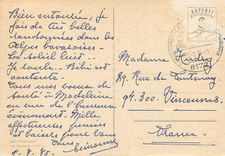 Bien entendu, je
fais de très belles
randonnées dans les
Alpes bavaroises.
Le soleil luit
Je Bibi est
contente.
Tous mes vœux de
santé à Madeleine
en
événement. Mille
affectueuses pensées
et baisers pour vous
tous
9. 7. 75.
Madame
89, Rue de Fontenay,
94.300. Vincennes
France